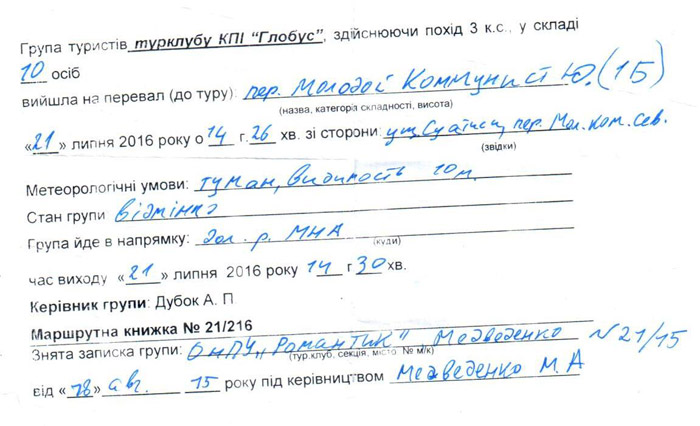 Група туристів турклубу КПІ "Глобус", здійснюючи похід 3 к.с., у складі
10 осіб
вийшла на перевал (до туру): пер. Молодой Коммунист Ю. (1Б)
(назва, категорія складності, висота)
«21» липня 2016 року о 14 г. 26 хв. зі сторони: пер. Мол. ком. сев.
(звідки)
Метеорологічні умови: туман, видимость 10 м.
Стан групи відмінна
Група йде в напрямку: дол. р. МНА
(куди)
час виходу «21» липня 2016 року 14 г 30 хв.
Керівник групи: Дубок А. П
Маршрутна книжка № 21/216
Знята записка групи: ОнПУ „Романтик" Медведенко N 21/15
(тур.клуб, секція, місто № м/к)
від «18» авг. 15 року під керівництвом Медведенко М. А